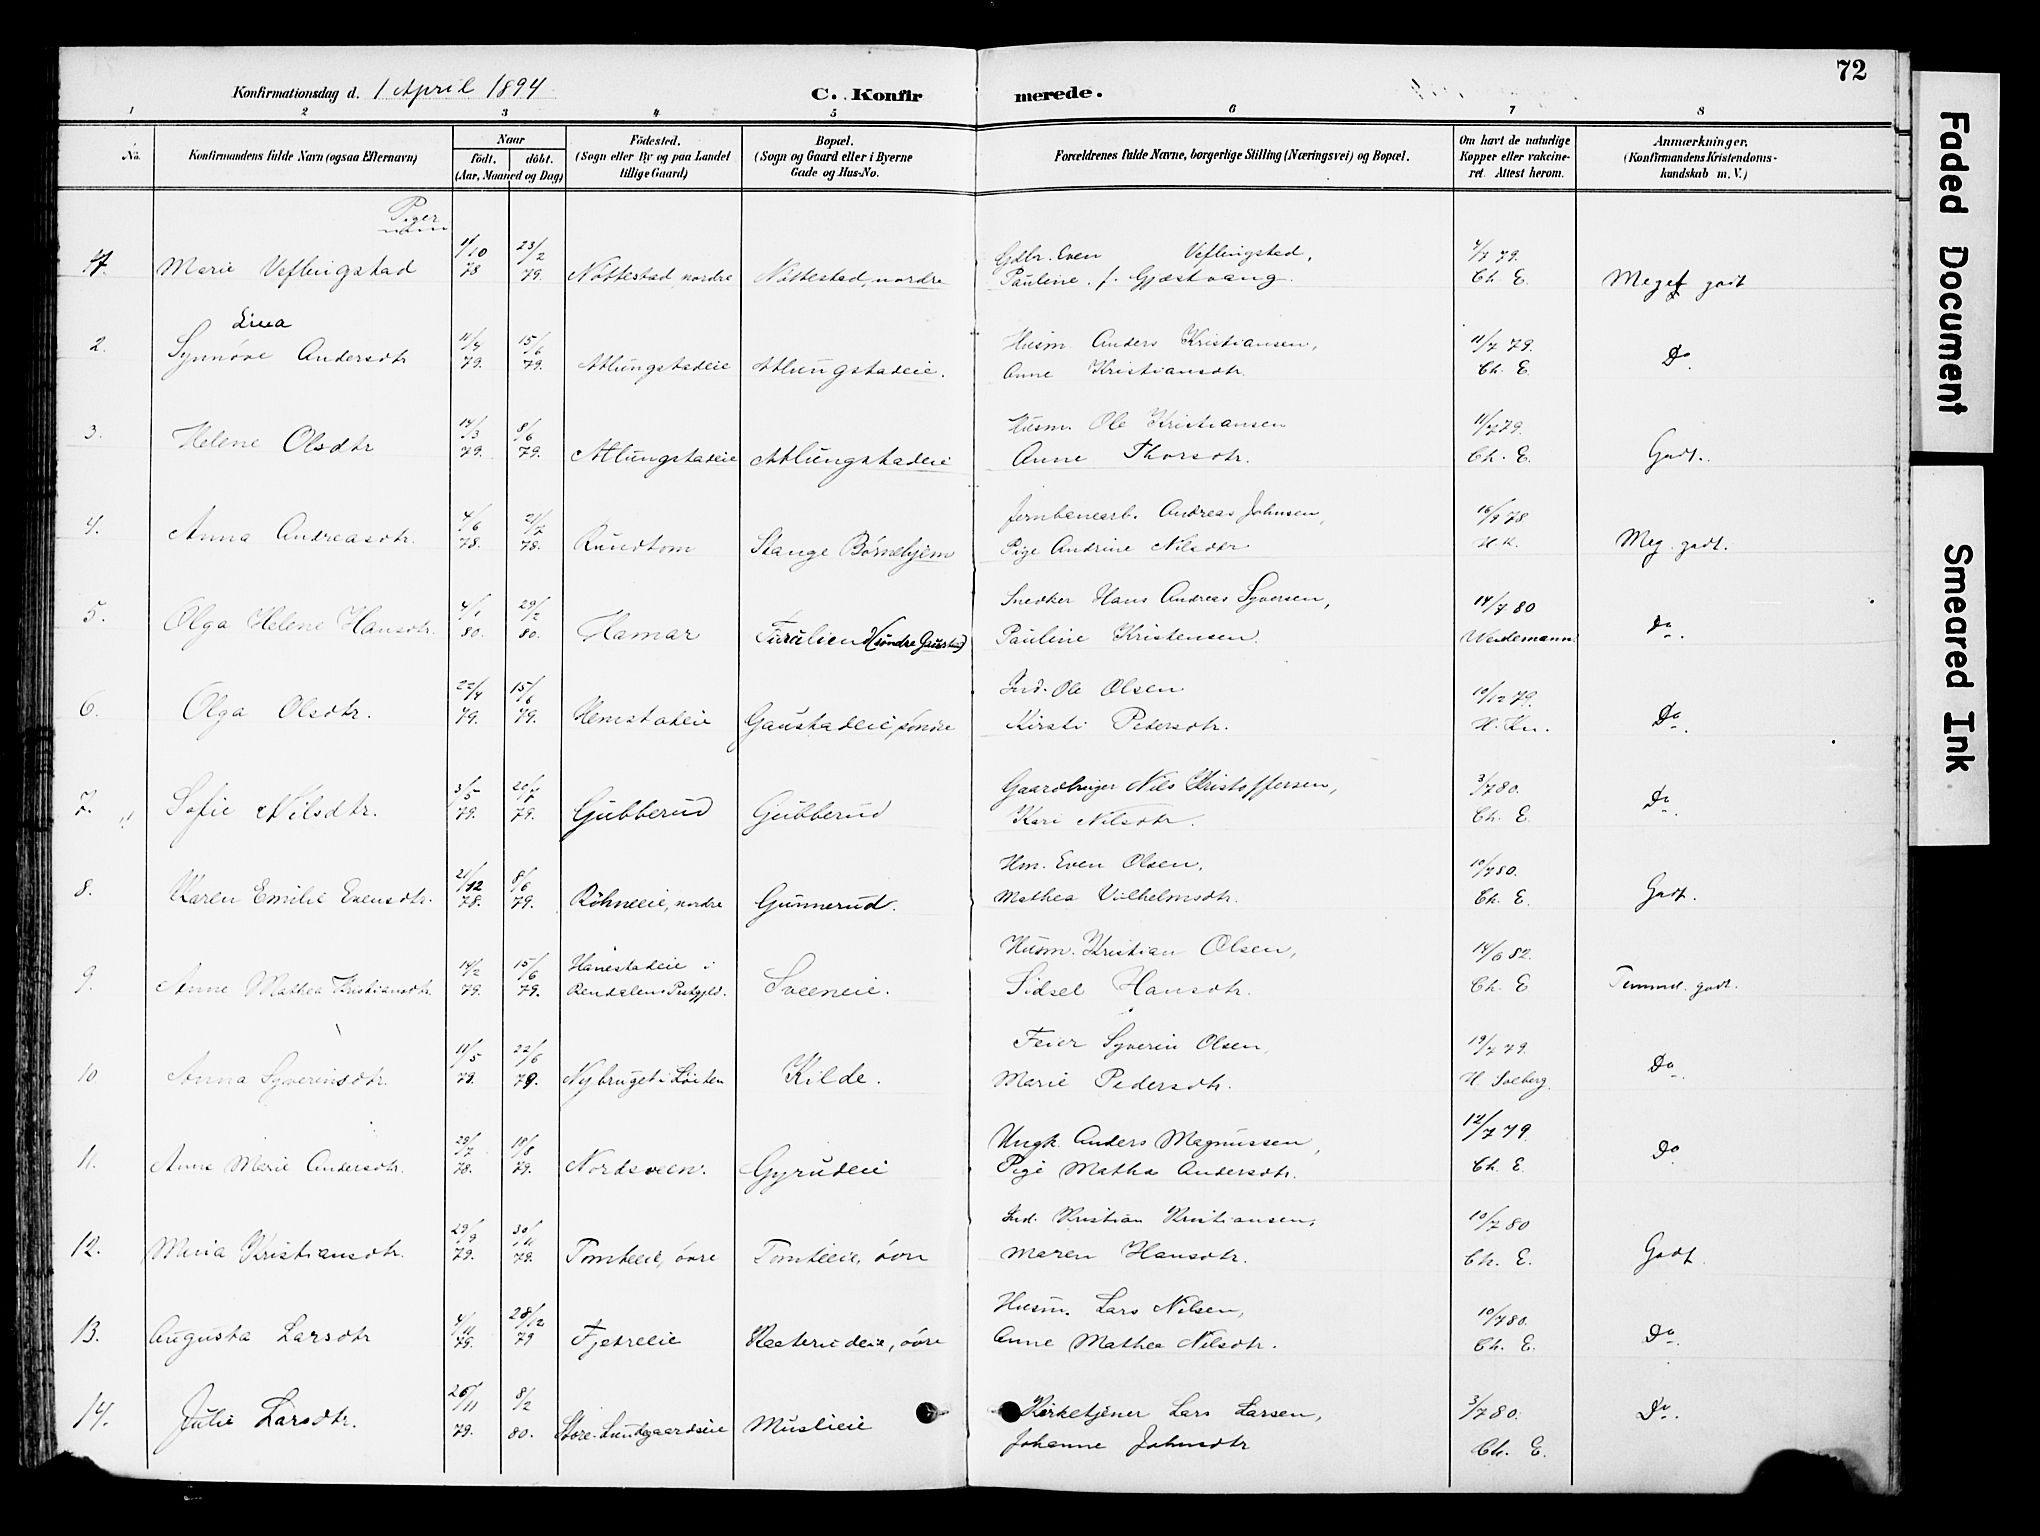 Konfirmationsdag d. 1 April 1894
C. Konfirmerede.
72
1 2 3 4 5 6 7 8
No. Konfirmandens fulde Navn (ogsaa Efternavn) Naar födt. döbt. (Aar, Maaned og Dag) Födested. (Sogn eller By og paa Landet tillige Gaard) Bopæl. (Sogn og Gaard eller i Byerne Gade og Hus-No. Forældrenes fulde Navne, borgerlige Stilling (Næringsvei) og Bopæl. Om havt de naturlige Kopper eller vakcineret. Attest herom. Anmærkninger. (Konfirmandens Kristendomskundskab m. V.)
Piger
1. Marie Veflingstad 11/10 78 23/2 79. Nöttestad, nordre Nöttestad, nordre Gdbr. Even Veflingstad, Pauline f. Gjæstvang. 4/7 79. Ch. E. Meget godt
2. Synnöve Lina Andersdtr 11/4 79. 15/6 79. Atlungstadeie Atlungstadeie. Husm Anders Kristiansen, Anne Kristiansdtr. 11/7 79. Ch. E. Do
3. Helene Olsdtr 14/3 79. 8/6 79. Atlungstadeie Atlungstadeie Husm. Ole Kristiansen Anne Thorsdtr. 11/7 79. Ch. E. Godt.
4. Anna Andreasdtr. 4/6 78. 21/7 78. Rundtom Stange Börnehjem Jernbanearb. Andreas Johnsen, Pige Andrine Nilsdtr 16/9 78 H. K. Meg. godt.
5. Olga Helene Hansdtr. 4/1 80. 29/2 80. Hamar Furulien (söndre Gaustad) Snedker Hans Andreas Syversen, Pauline Kristensen. 14/7 80 Weidemann Do
6. Olga Olsdtr. 22/4 79. 15/6 79. Hemstadeie Gaustadeie, söndre Ind. Ole Olsen Kirsti Pedersdtr. 10/12 79. H. Kn. Do
7. Sofie Nilsdtr. 3/5 79. 20/7 79. Gubberud Gubberud Gaardbruger Nils Kristoffersen, Kari Nilsdtr. 3/7 80. Ch. E. Do
8. Karen Emilie Evensdtr. 21/12 78. 8/6 79. Röhneeie, nordre Gunnerud. Hm. Even Olsen, Mathea Vilhelmsdtr. 10/7 80. Ch. E. Godt.
9. Anne Mathea Kristiansdtr 14/2 79. 15/6 79. Hanestadeie i Rendalens Prstgjld. Sveeneie. Husm. Kristian Olsen, Sidsel Hansdtr. 14/6 82. Ch. E Temmel. godt.
10 Anna Syverinsdtr. 11/5 79. 22/6 79. Nybruget i Löiten Kilde. Feier Syverin Olsen, Marie Pedersdtr. 19/7 79. H Solberg. Do
11. Anna Marie Andersdtr. 29/7 78. 10/8 79. Nordsveen. Gyrudeie Ungk. Anders Magnussen, Pige Mathea Andersdtr. 12/7 79. Ch. E. Do
12. Maria Kristiansdtr. 29/9 79. 30/11 79. Tomteeie, övre Tomteeie, övre Ind. Kristian Kristiansen, Maren Hansdtr. 10/7 80 Ch. E. Godt
13. Augusta Larsdtr 4/11 79. 28/12 79 Fjetreeie övre Husm. Lars Nilsen, Anne Mathea Nilsdtr. 10/7 80. Ch. E. Do
14. Julie Larsdtr. 26/11 79. 8/2 80. Store-Lundgaardseie Muslieie Kirketjener Lars Larsen, Johanne Johnsdtr 3/7 80. Ch. E. Do
Faded Document
Smeared Ink